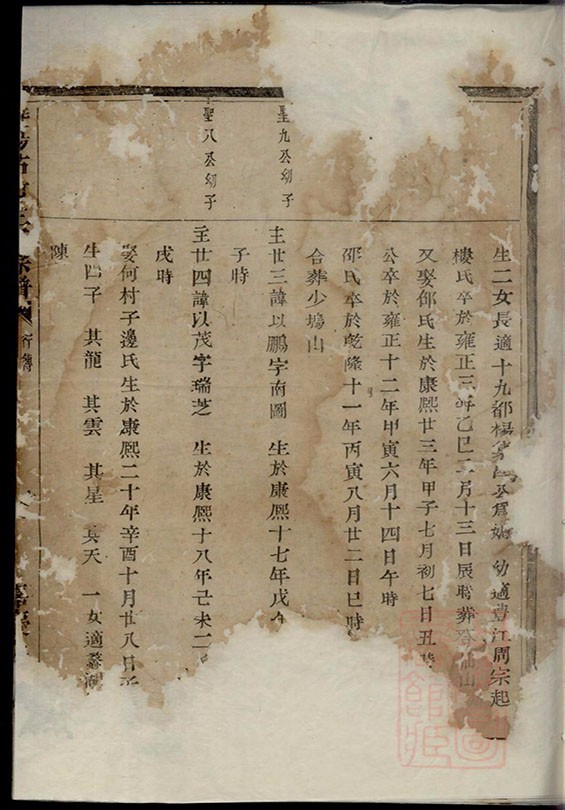 生二女長適十九都楊 幼適 江周宗起
樓氏卒於雍正三年乙巳二月十三日辰時葬 山
又娶 氏生於康熙廿三年甲子七月初七日丑時
公卒於雍正十二年甲寅六月十四日午時
邵氏卒於乾隆十一年丙寅八月廿二日巳時
合葬少塢山
聖九公幼子
主廿三諱以鵬字南圖 生於康熙十七年戊午
子時
聖八公幼子
主廿四諱以茂字瑞芝 生於康熙十八年己未二
戌時
娶何村子邊氏生於康熙二十年辛酉十月廿八日子
生四子 其龍 其雲 其星 其天 一女適
陳
宗譜
行傳